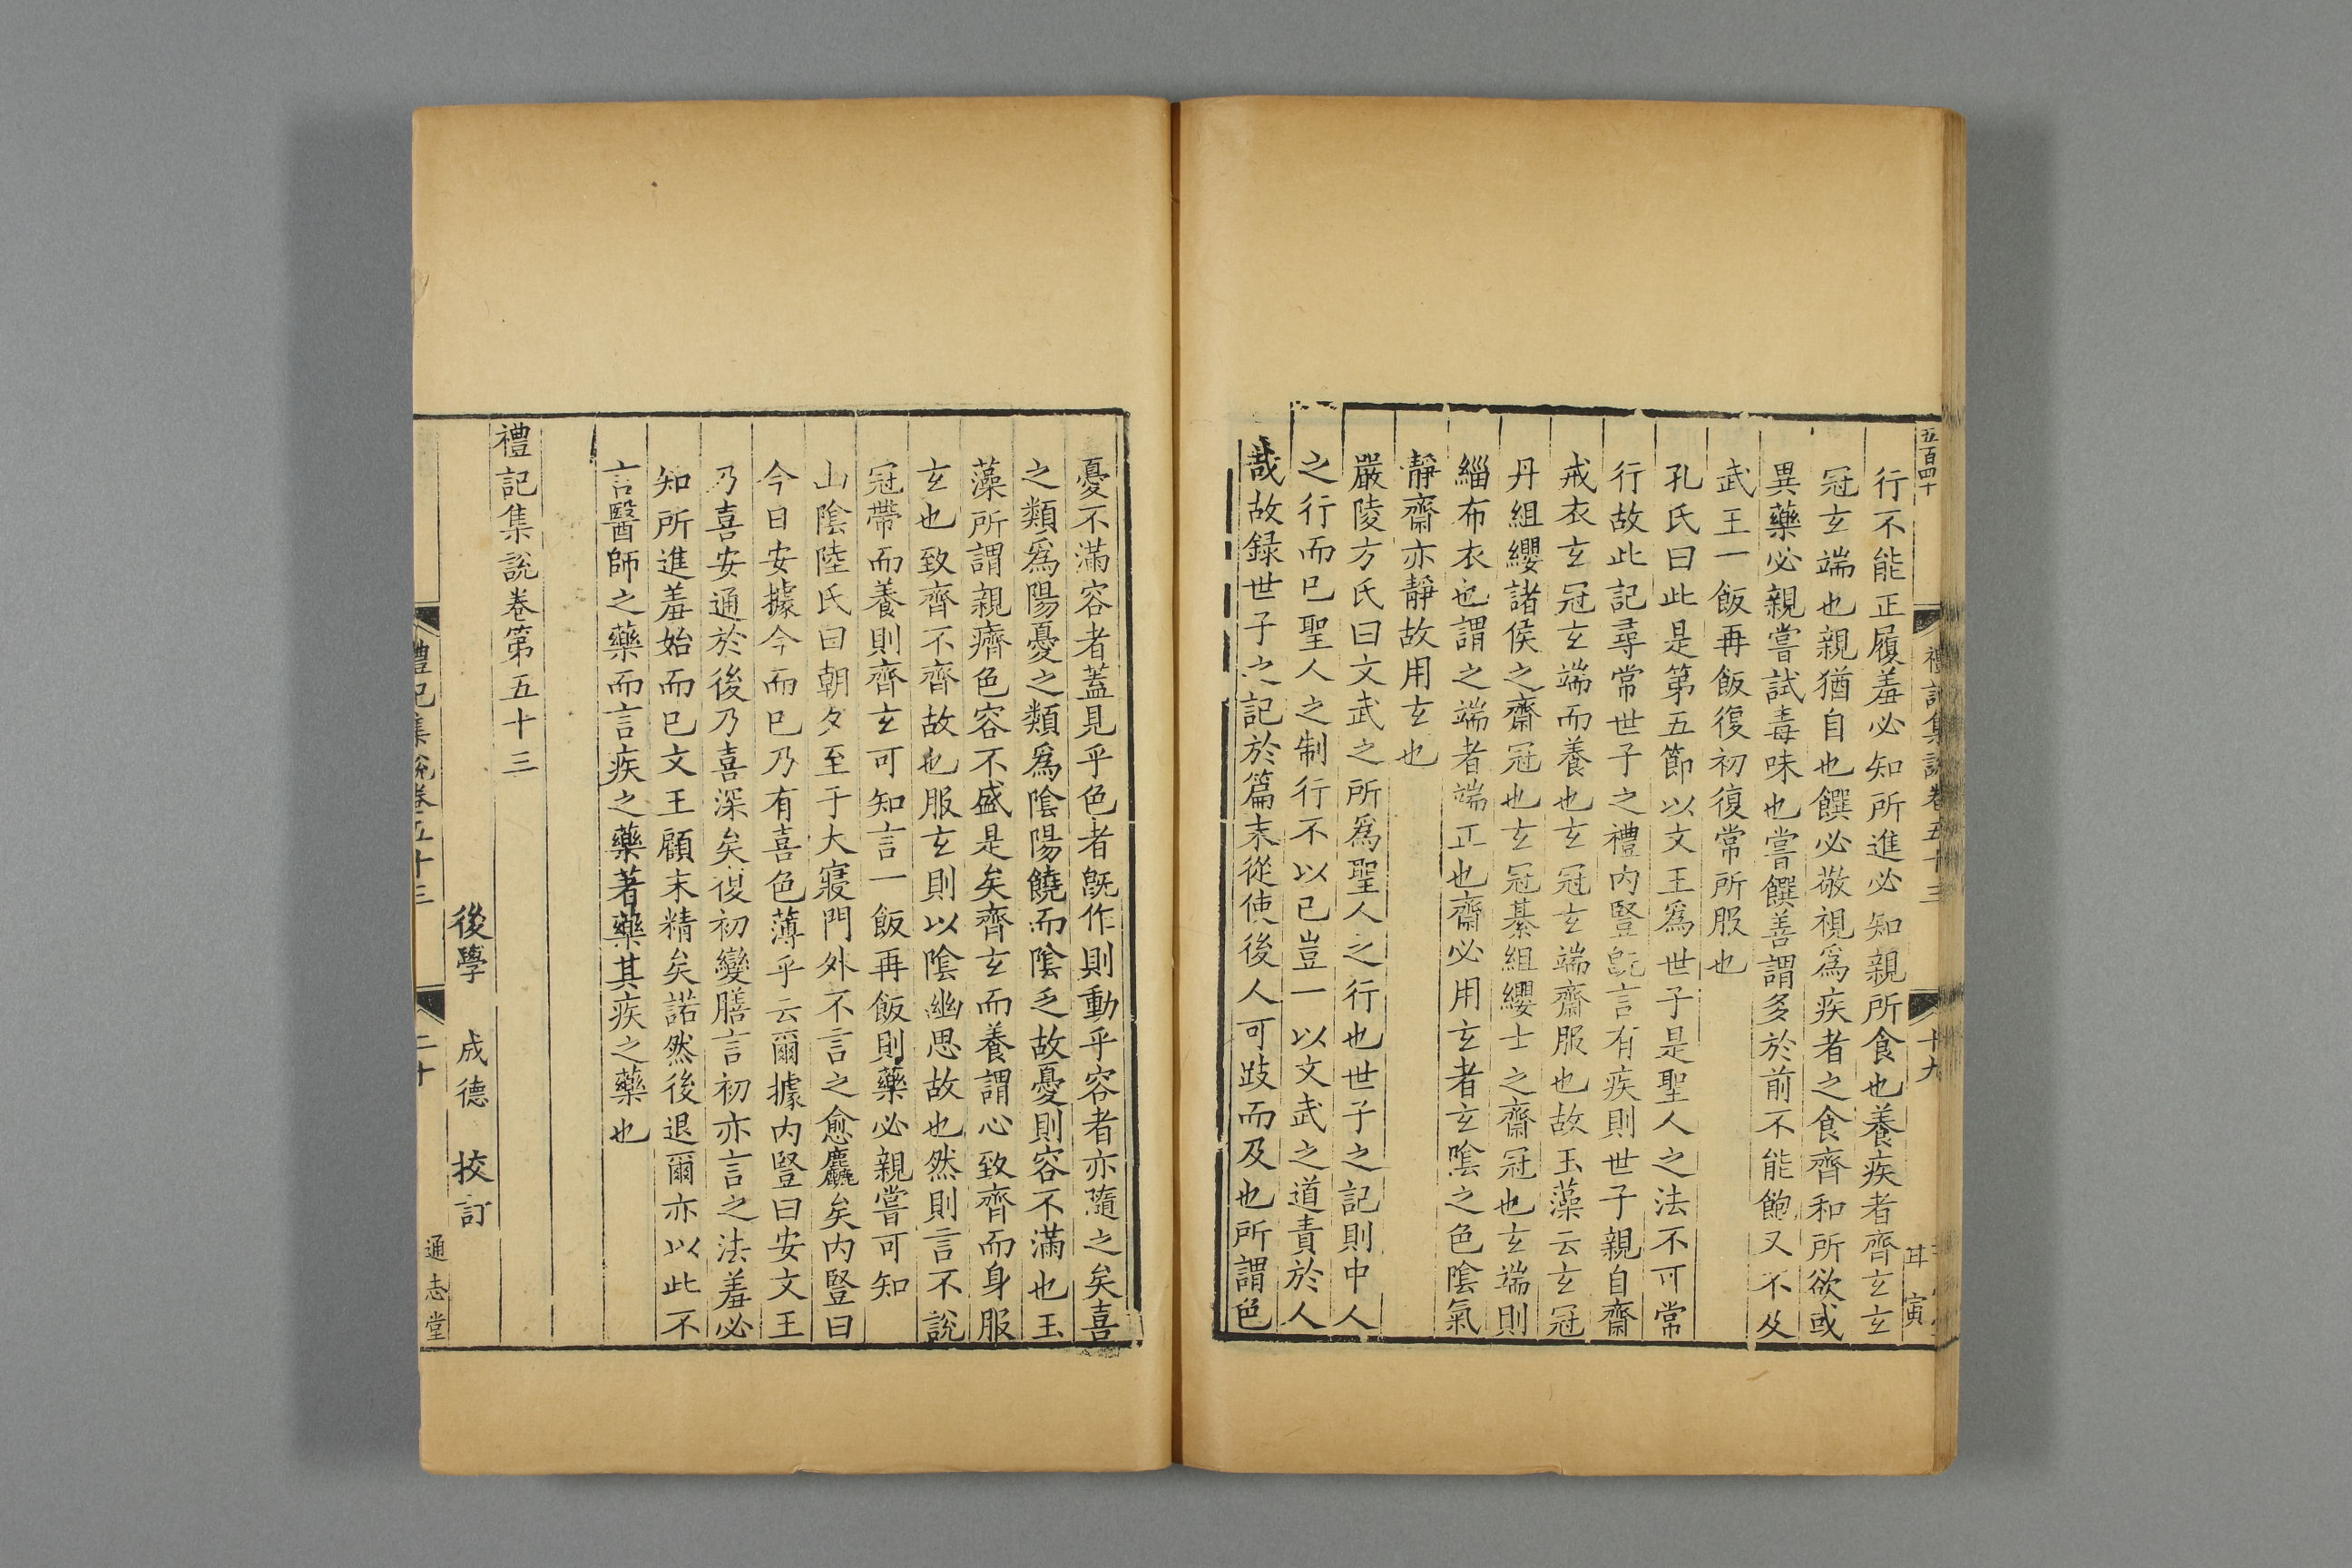 五百四十
禮記集說卷五十三
十九
行不能正履羞必知所進必知親所食也養疾者齊玄玄
冠玄端也親猶自也饌必敬視爲疾者之食齊和所欲或
異藥必親嘗試毒味也嘗饌善謂多於前不能飽又不及
武王一飯再飯復初復常所服也
孔氏曰此是第五節以文王爲世子是聖人之法不可常
行故此記尋常世子之禮内豎旣言有疾則世子親自齋
戒衣玄冠玄端而養也玄冠玄端齋服也故玉藻云玄冠
丹組纓諸侯之齋冠也玄冠綦組纓士之齋冠也玄端則
緇布衣也謂之端者端正也齋必用玄者玄隂之色隂氣
靜齋亦靜故用玄也
嚴陵方氏曰文武之所爲聖人之行也世子之記則中人
之行而已聖人之制行不以已豈一以文武之道責於人
哉故録世子之記於篇末從使後人可跂而及也所謂色
憂不滿容者蓋見乎色者旣作則動乎容者亦隨之矣喜
之類爲陽憂之類爲隂陽饒而隂乏故憂則容不滿也玉
藻所謂親癠色容不盛是矣齊玄而養謂心致齊而身服
玄也致齊不齊故也服玄則以隂幽思故也然則言不說
冠帶而養則齊玄可知言一飯再飯則藥必親嘗可知
山隂陸氏曰朝夕至于大寢門外不言之愈麤矣内豎曰
今日安據今而已乃有喜色薄乎云爾據内豎曰安文王
乃喜安通於後乃喜深矣復初變膳言初亦言之法羞必
知所進羞始而已文王顧末精矣諾然後退爾亦以此不
言醫師之藥而言疾之藥著藥其疾之藥也
禮記集說卷第五十三
後學 成德 挍訂
禮記集說卷五十三
二十
通志堂